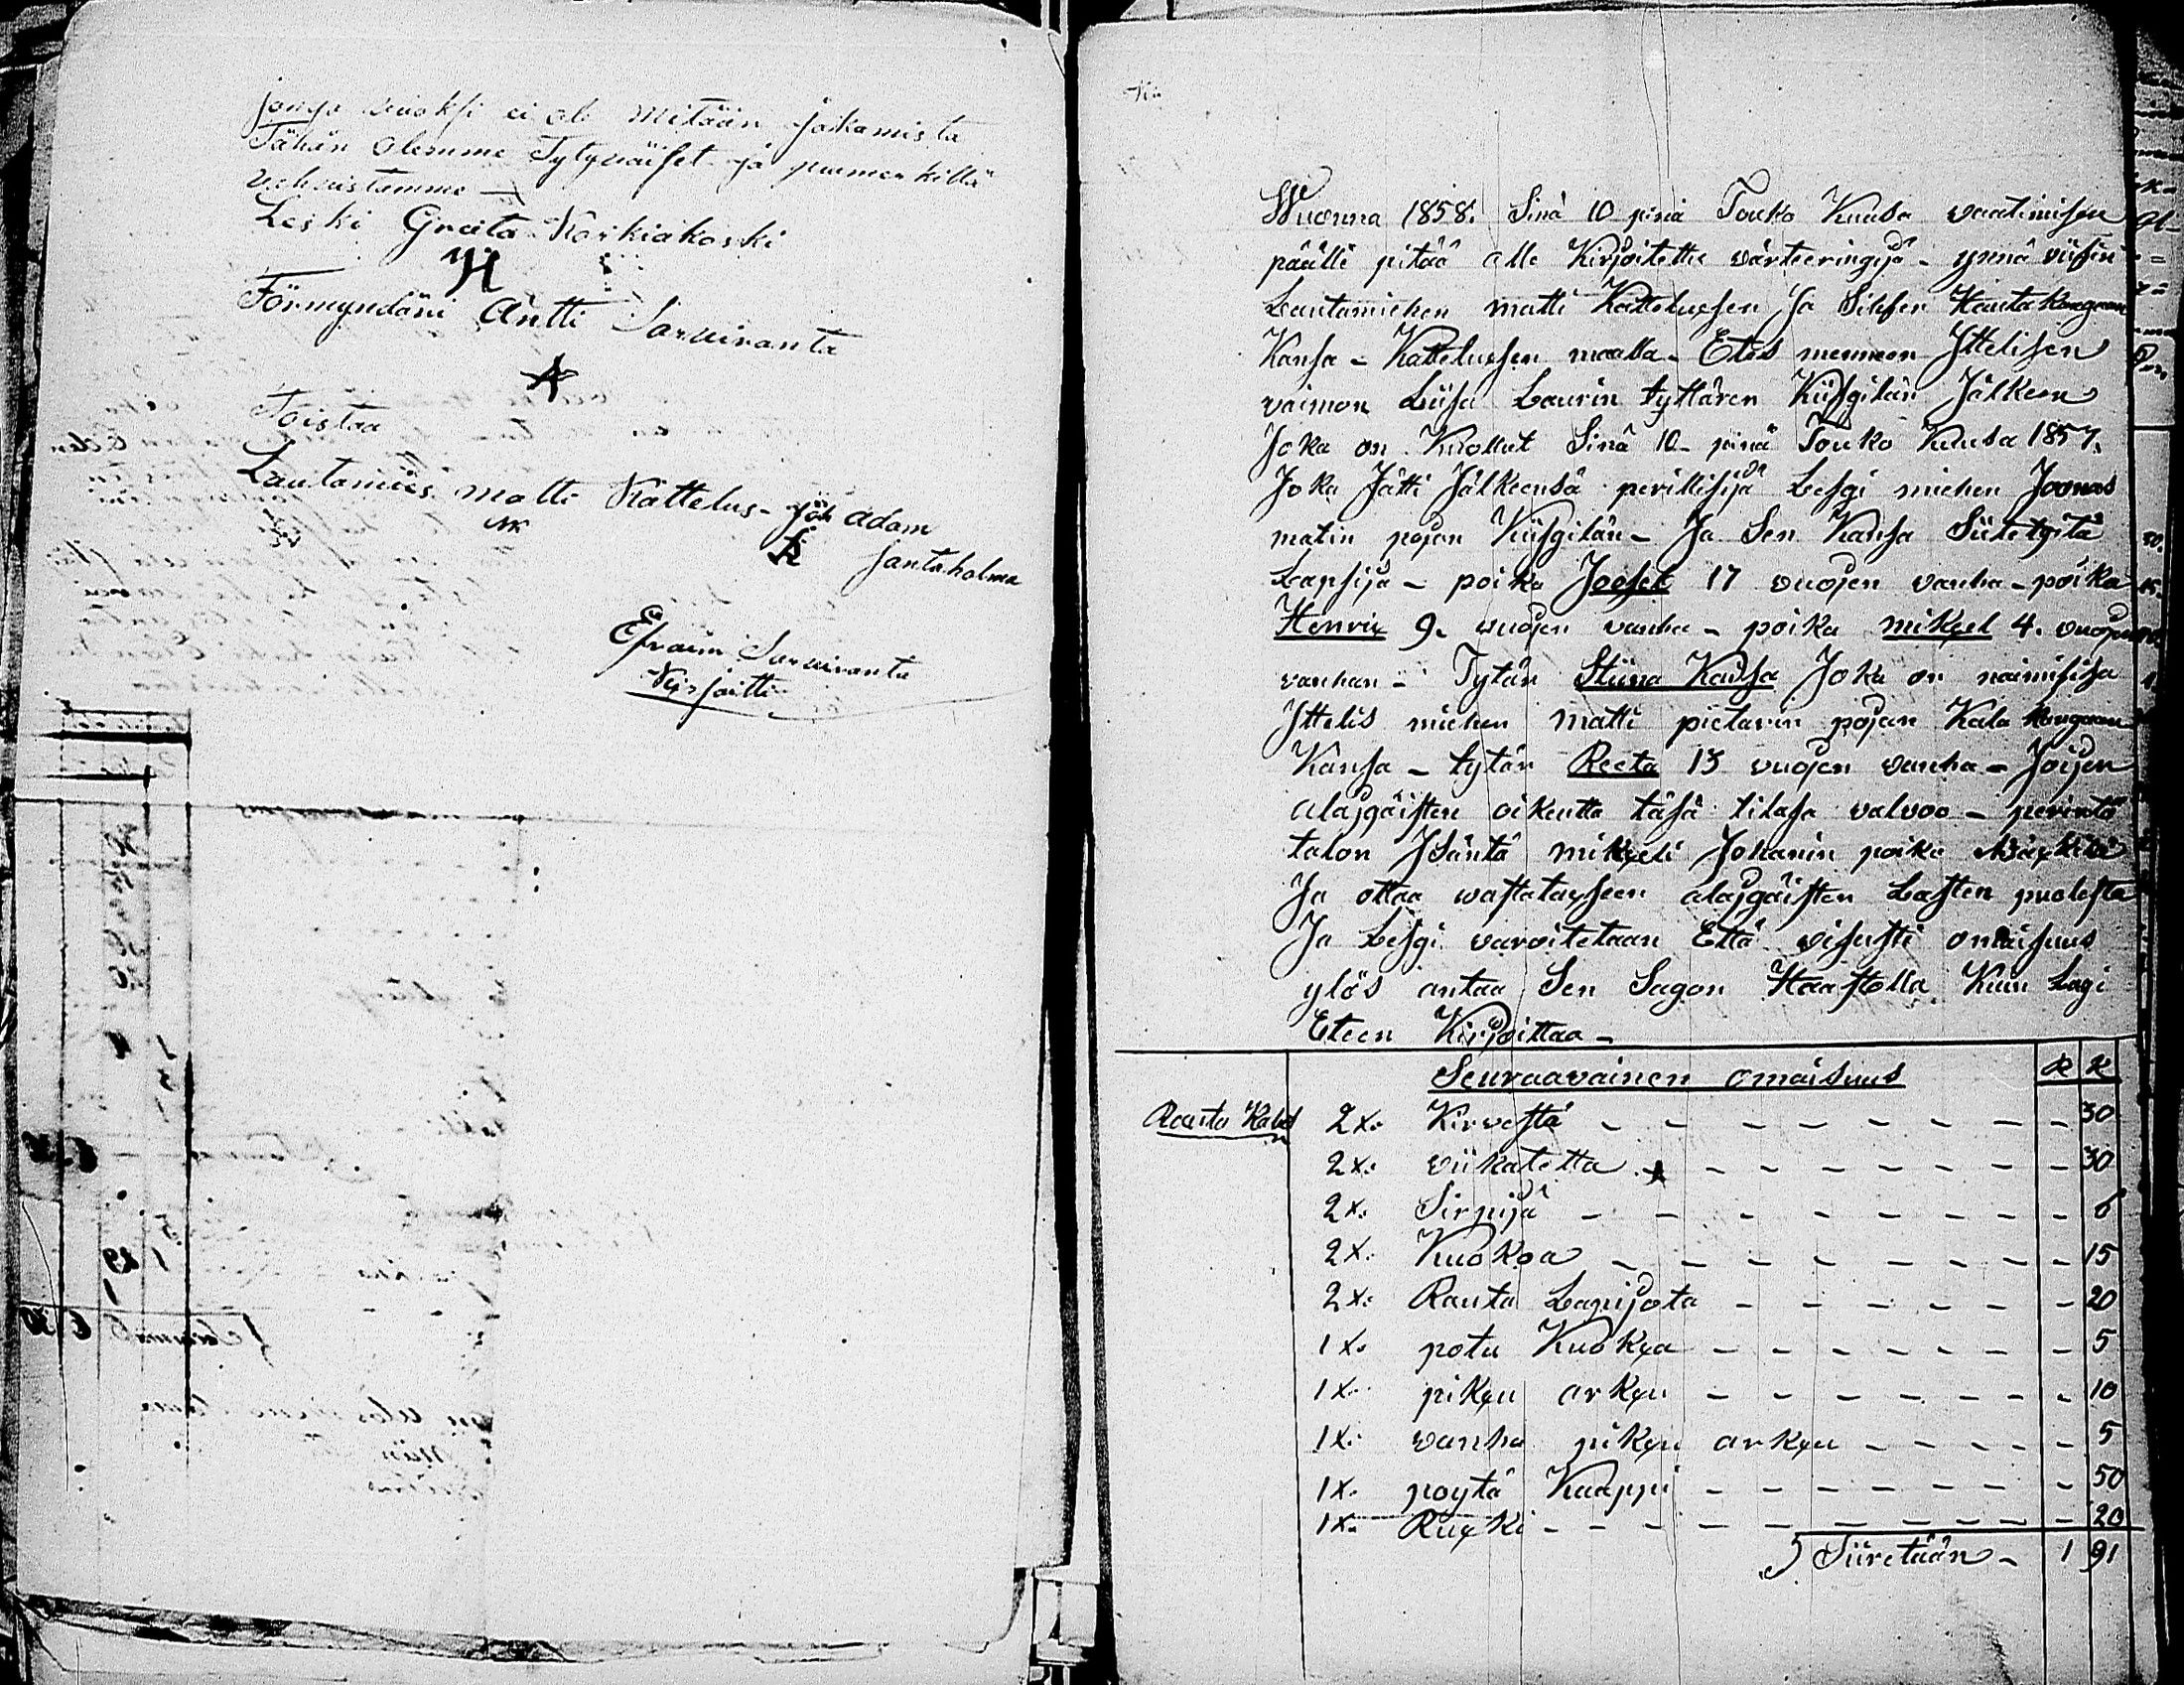 jonga vuoksi ei ole mitään jakamista
Tähän olemme Tytyväiset ja puumerkillä
vahvistamme
Leski Greita Korkiakoski
Förmyndäri Antti Sarviranta
Toistaa
Lautamies matti Kattelus - ja adam
Santaholma
Efraim Sarviranta
Kirjoitti
Wuonna 1858. Sinä 10 pivä Touko Kuusa vaatimisen
päälle pitää alle Kirjoitettu värteeringiä - ynnä viisin
Lautamiehen matti Kattelussen Ja Silfer Hautakangaan
Kansa - Kattelussen maalla - Etes mennen Ittelisen
vaimon Liisa Laurin tyttären Kiisgilän Jälkeen
Joka on Kuollut Sinä 10 - pivä Touko Kuusa 1857.
Joka Jätti Jälkeensä perillisijä Lesgi miehen Joonas
matin pojan Kiisgilän - Ja Sen Kansa Siitetyitä
Lapsija - poika Joosef 17 vuojen vanha - poika
Henrix 9. vuojen vanha - poika mikxel 4. vuojen
vanhan - Tytär Stiina Kaisa Joka on naimisisa
Ittelis miehen matti pietarin pojan Kala Kangaan
Kansa - tytär Reeta 13 vuojen vanha - Joijen
alajgäisten oikeutta täsä tilasa valvoo - perintö
talon Isäntä mikxeli Johanin poika
Ja ottaa vastatayseen alajgäisten Lasten puolesta
Ja Lesgi varoitetaan Että visusti omaisuus
ylös antaa Sen Sagon Haastolla Kuin Lagi
Eteen Kirjoittaa -
Seuraavainen omaisuus R K
Rauta Kalut 2x. Kirvestä - - - - - - - 30
2x. viikatetta - - - - - - - 30
2x. Sirpijä - - - - - - - 6
2x. Kuokoa - - - - - - - 15
2x. Rauta Lapijota - - - - - - 20
1x. potu Kuokxa - - - - - - 5
1x. pikxu arkxu - - - - - - 10
1x. vanha pikxu arkxu - - - - - 5
1x. poytä Kaappi - - - - - - 50
1x. Ruxki - - - - - - - - 20
Siiretään - 1 91